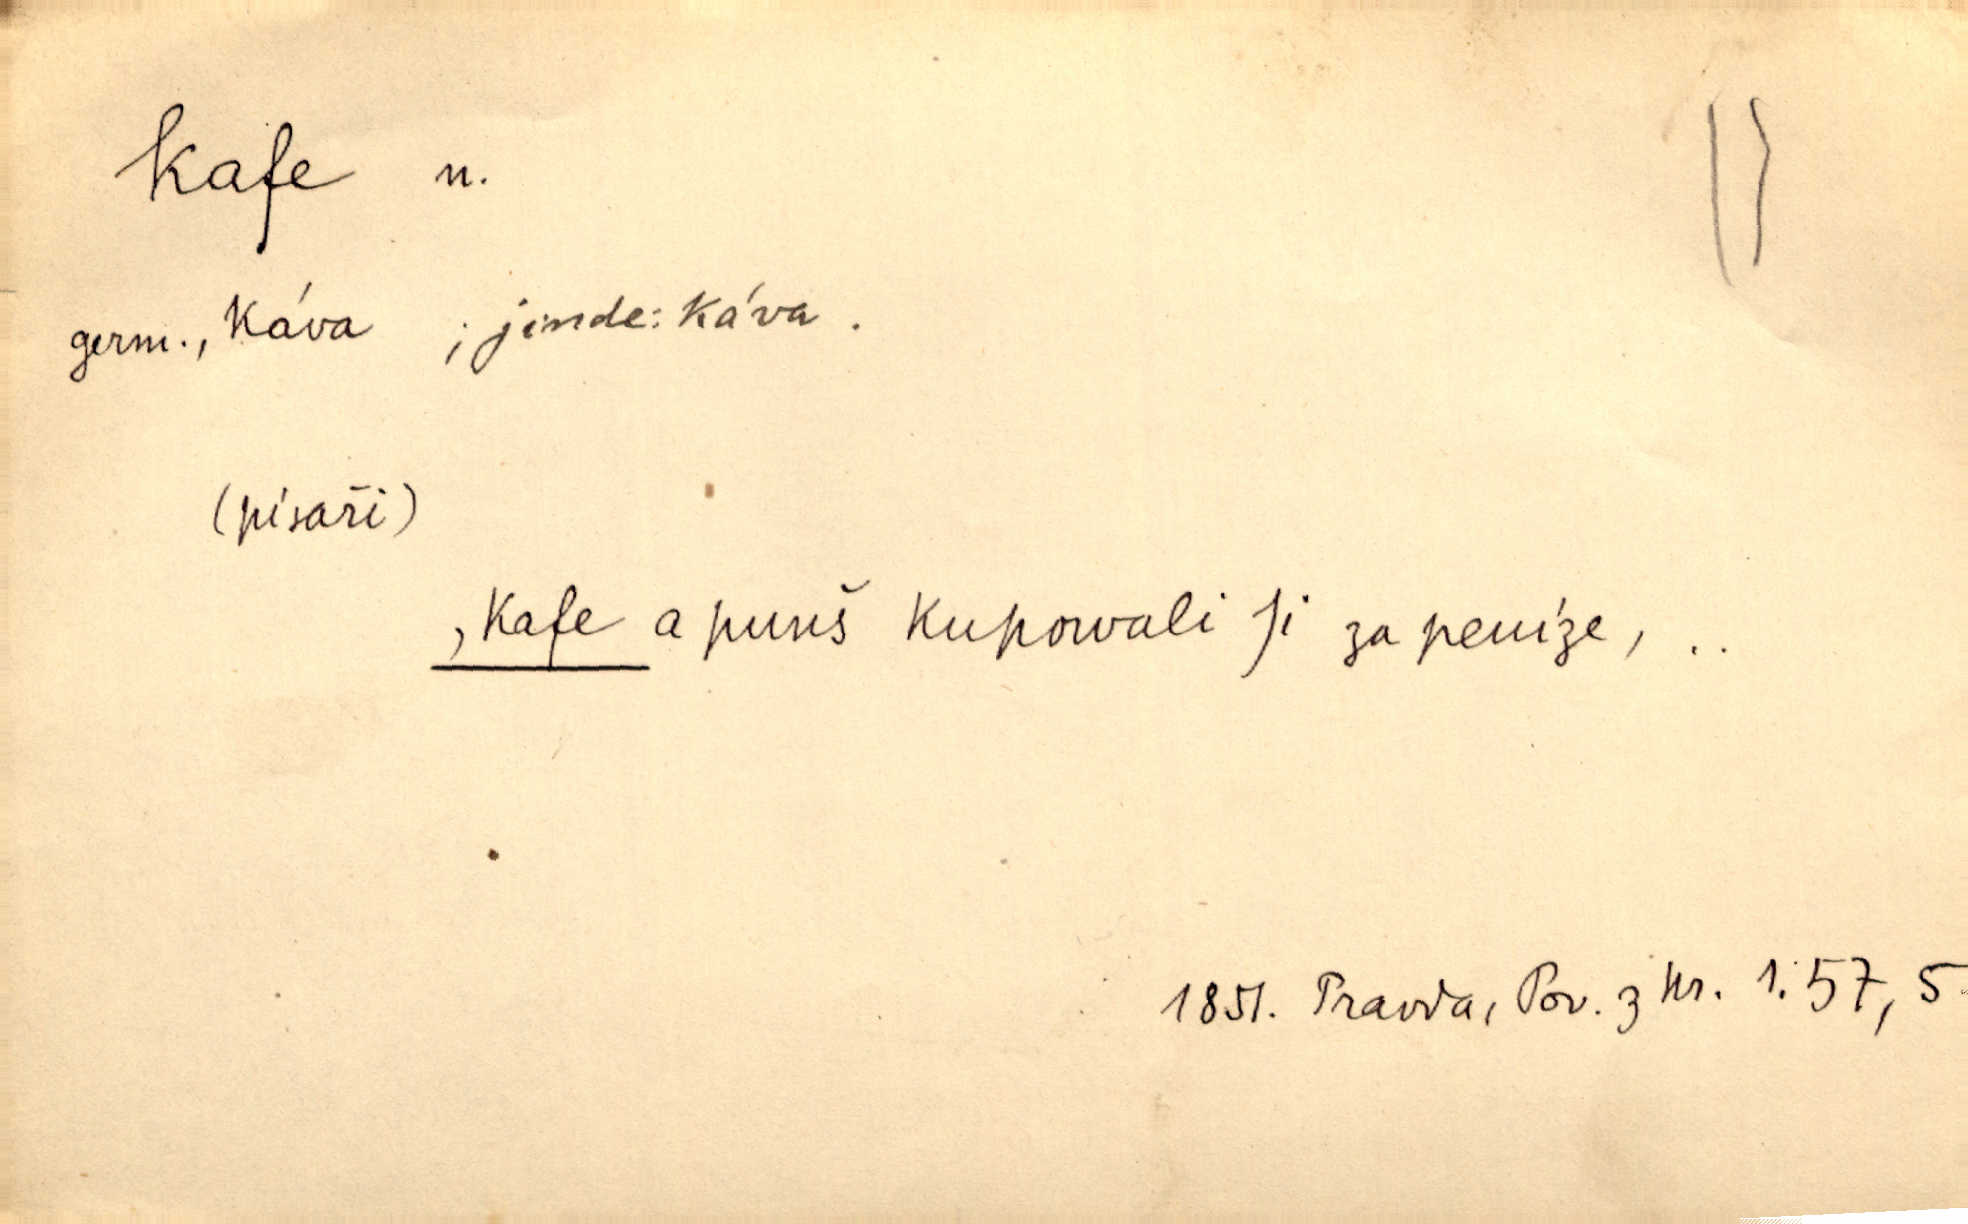 kafe n.
germ., káva ; jinde: káva .
(písaři)
, kafe a punš kupowali si za peníze, ..
1851. Pravda, Pov. z kr. 1. 57, 5